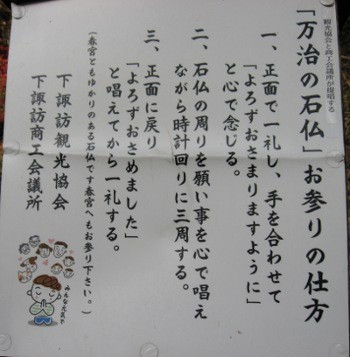 観光協会と商工会議所が提唱する
「万治の石仏」お参りの仕方
一、正面で一礼し、手を合わせて
「よろずおさまりますように」
と心で念じる。
二、石仏の周りを願い事を心で唱え
ながら時計回りに三周する。
三、正面に戻り
「よろずおさめました」
と唱えてから一礼する。
(春宮ともゆかりのある石仏です春宮へもお参り下さい。)
下諏訪観光協會
下諏訪商工会議所
みんな元気で